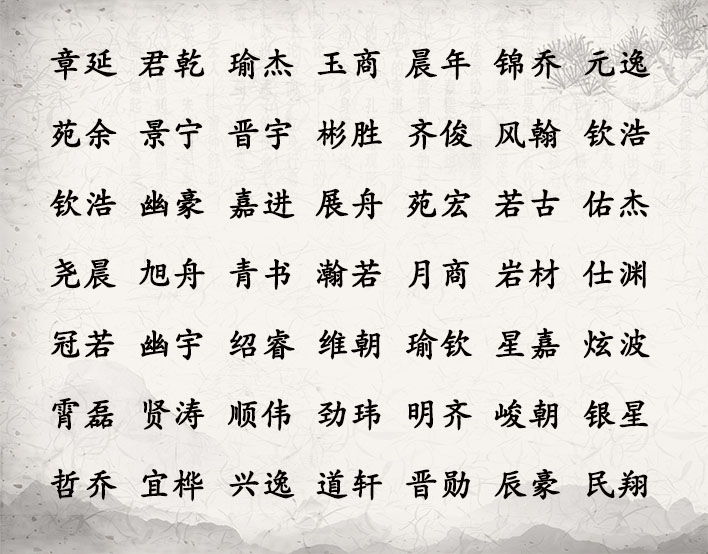 章延 君乾 瑜杰 玉商 晨年 锦乔 元逸
苑余 景宁 晋宇 彬胜 齐俊 风翰 钦浩
钦浩 幽豪 嘉进 展舟 苑宏 若古 佑杰
尧晨 旭舟 青书 瀚若 月商 岩材 仕渊
冠若 幽宇 绍睿 维朝 瑜钦 星嘉 炫波
霄磊 贤涛 顺伟 劲玮 明齐 峻朝 银星
哲乔 宜桦 兴逸 道轩 晋勋 辰豪 民翔